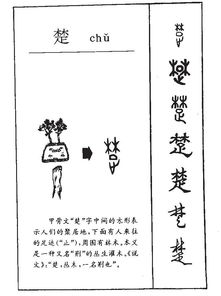 楚 chǔ
甲骨文“楚”字中间的水形表
示人们的聚居地，下面有人来往
的足迹（“止”），周围有林木。本义
是一种又名“荆”的丛生灌木。《说
文》：“楚，丛木，一名荆也”。
楚
楚
楚
楚
楚
楚
楚